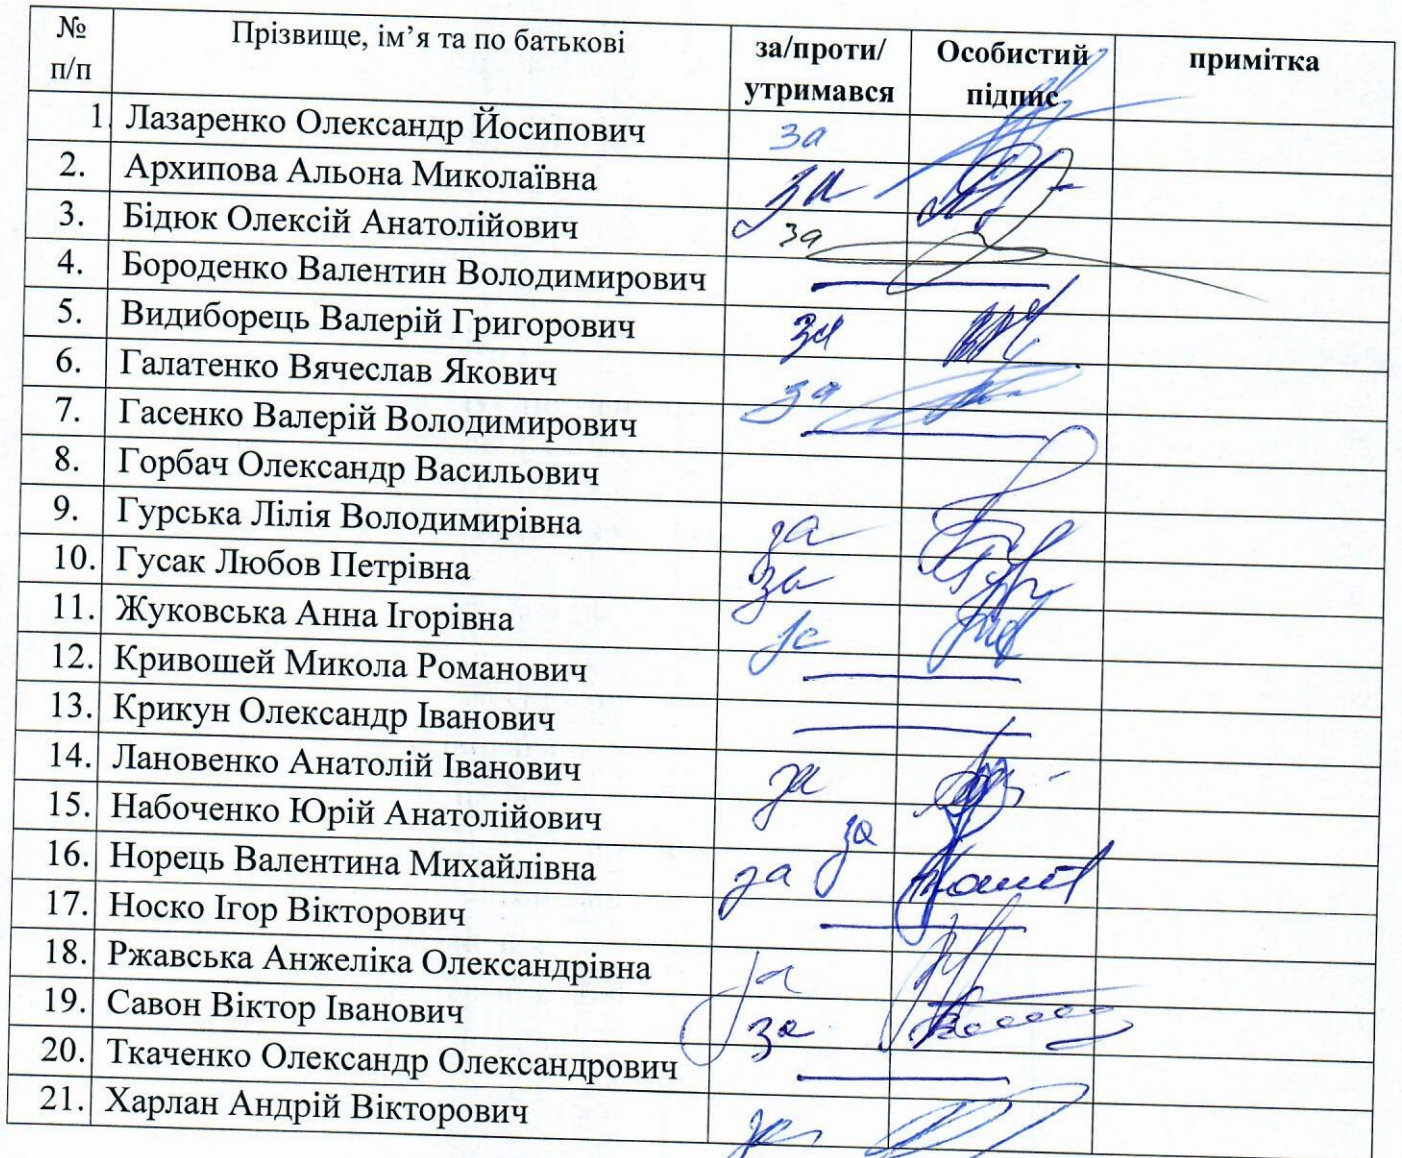 № п/п Прізвище, ім’я та по батькові за/проти/утримався Особистий підпис примітка
1. Лазаренко Олександр Йосипович за
2. Архипова Альона Миколаївна за
3. Бідюк Олексій Анатолійович за
4. Бороденко Валентин Володимирович
5. Видиборець Валерій Григорович за
6. Галатенко Вячеслав Якович за
7. Гасенко Валерій Володимирович
8. Горбач Олександр Васильович
9. Гурська Лілія Володимирівна за
10. Гусак Любов Петрівна за
11. Жуковська Анна Ігорівна за
12. Кривошей Микола Романович
13. Крикун Олександр Іванович
14. Лановенко Анатолій Іванович за
15. Набоченко Юрій Анатолійович за
16. Норець Валентина Михайлівна за
17. Носко Ігор Вікторович
18. Ржавська Анжеліка Олександрівна за
19. Савон Віктор Іванович за
20. Ткаченко Олександр Олександрович
21. Харлан Андрій Вікторович за